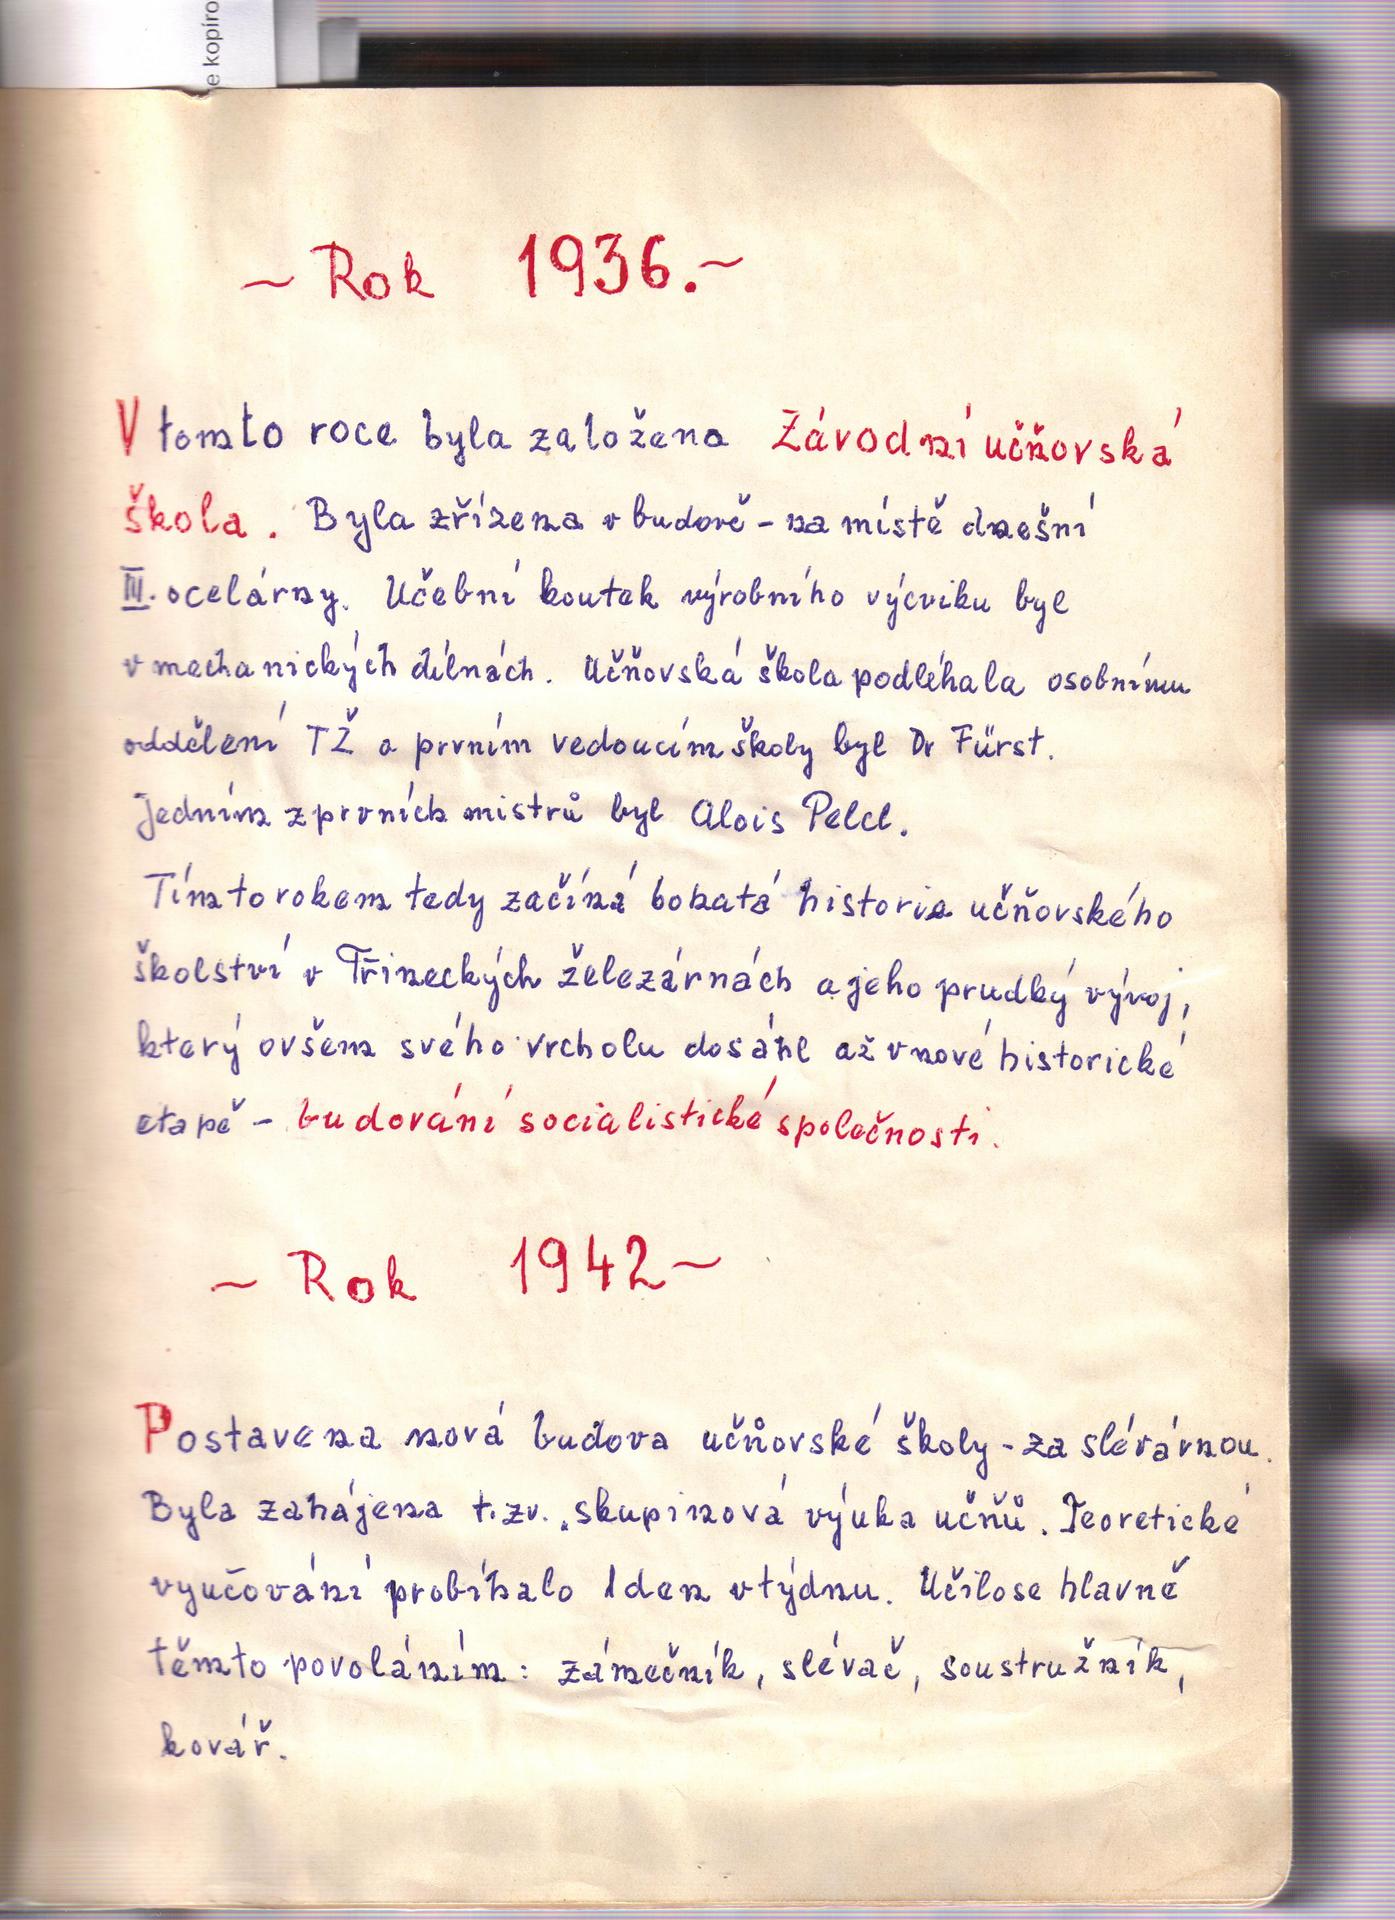 e kopíro
~ Rok 1936. ~
V tomto roce byla založena Závodní učňovská
škola. Byla zřízena v budově - na místě dnešní
III. ocelárny. Učební koutek výrobního výcviku byl
v mechanických dílnách. Učňovská škola podléhala osobnímu
oddělení TŽ a prvním vedoucím školy byl Dr Fürst.
Jedním z prvních mistrů byl Alois Pelcl.
Tímto rokem tedy začíná bohatá historie učňovského
školství v Třineckých železárnách a jeho prudký vývoj,
který ovšem svého vrcholu dosáhl až v nové historické
etapě - budování socialistické společnosti.
~ Rok 1942 ~
Postavena nová budova učňovské školy - za slévárnou.
Byla zahájena t.zv. skupinová výuka učňů. Teoretické
vyučování probíhalo 1 den v týdnu. Učilo se hlavně
těmto povoláním: zámečník, slévač, soustružník,
kovář.